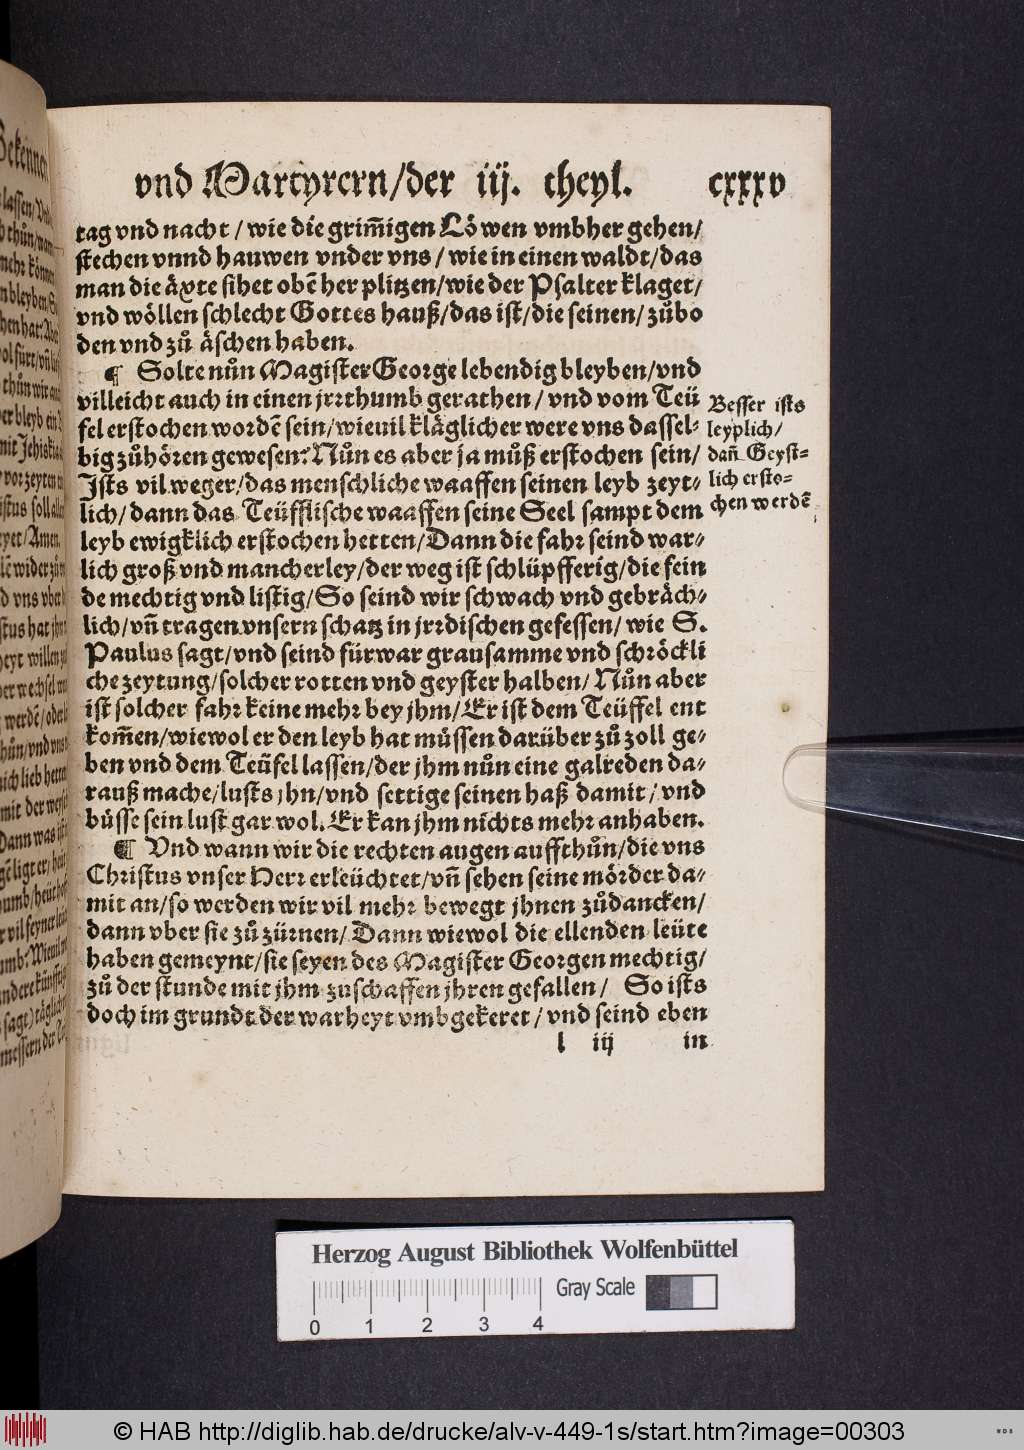 vnd Martyrern/der iij. theyl. cxxxv
tag vnd nacht / wie die grim̃igen Loͤwen vmbher gehen/
stechen vnnd hauwen vnder vns / wie in einen waldt/das
man die aͤxte sihet obẽ her plitzen/wie der Psalter klaget/
vnd woͤllen schlecht Gottes hauß/das ist/die seinen/zuͦbo
den vnd zuͦ aͤschen haben.
¶ Solte nuͦn Magister George lebendig bleyben/vnd
villeicht auch in einen jrrthumb gerathen / vnd vom Teü
fel erstochen wordẽ sein/wieuil klaͤglicher were vns dassel⸗
big zuͦhoͤren gewesen? Nuͦn es aber ja muͦß erstochen sein/
Ists vil weger/das menschliche waaffen seinen leyb zeyt⸗
lich/dann das Teüfflische waaffen seine Seel sampt dem
leyb ewigklich erstochen hetten/Dann die fahr seind war⸗
lich groß vnd mancherley/der weg ist schlüpfferig/die fein
de mechtig vnd listig/So seind wir schwach vnd gebraͤch⸗
lich/vñ tragen vnsern schatz in jrrdischen gefessen/ wie S.
Paulus sagt/vnd seind fürwar grausamme vnd schroͤckli
che zeytung/solcher rotten vnd geyster halben/ Nuͦn aber
ist solcher fahr keine mehr bey jhm/Er ist dem Teüffel ent
kom̃en/wiewol er den leyb hat muͤssen darüber zuͦ zoll ge⸗
ben vnd dem Teüfel lassen/der jhm nuͦn eine galreden da⸗
rauß mache/lusts jhn/vnd settige seinen haß damit/vnd
buͤsse sein lust gar wol. Er kan jhm nichts mehr anhaben.
¶ Vnd wann wir die rechten augen auffthuͦn/die vns
Christus vnser Herr erleüchtet/vñ sehen seine moͤrder da⸗
mit an/so werden wir vil mehr bewegt jhnen zuͦdancken/
dann vber sie zuͦ zürnen/Dann wiewol die ellenden leüte
haben gemeynt/sie seyen des Magister Georgen mechtig/
zuͦ der stunde mit jhm zuschaffen jhren gefallen / So ists
doch im grundt der warheyt vmbgekeret / vnd seind eben
l iij in
Besser ists
leyplich/
dañ Geyst⸗
lich ersto⸗
chen werdẽ
Herzog August Bibliothek Wolfenbüttel
Gray Scale
0 1 2 3 4
© HAB http://diglib.hab.de/drucke/alv-v-449-1s/start.htm?image=00303